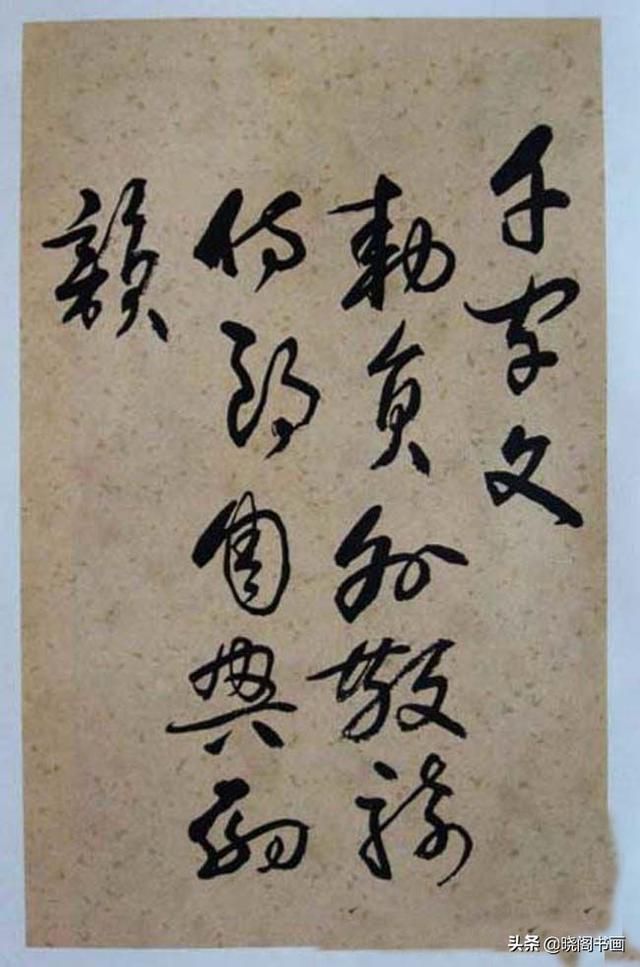 千字文
勑員外散騎
侍郎周興嗣
韻
头条 @晓阁书画